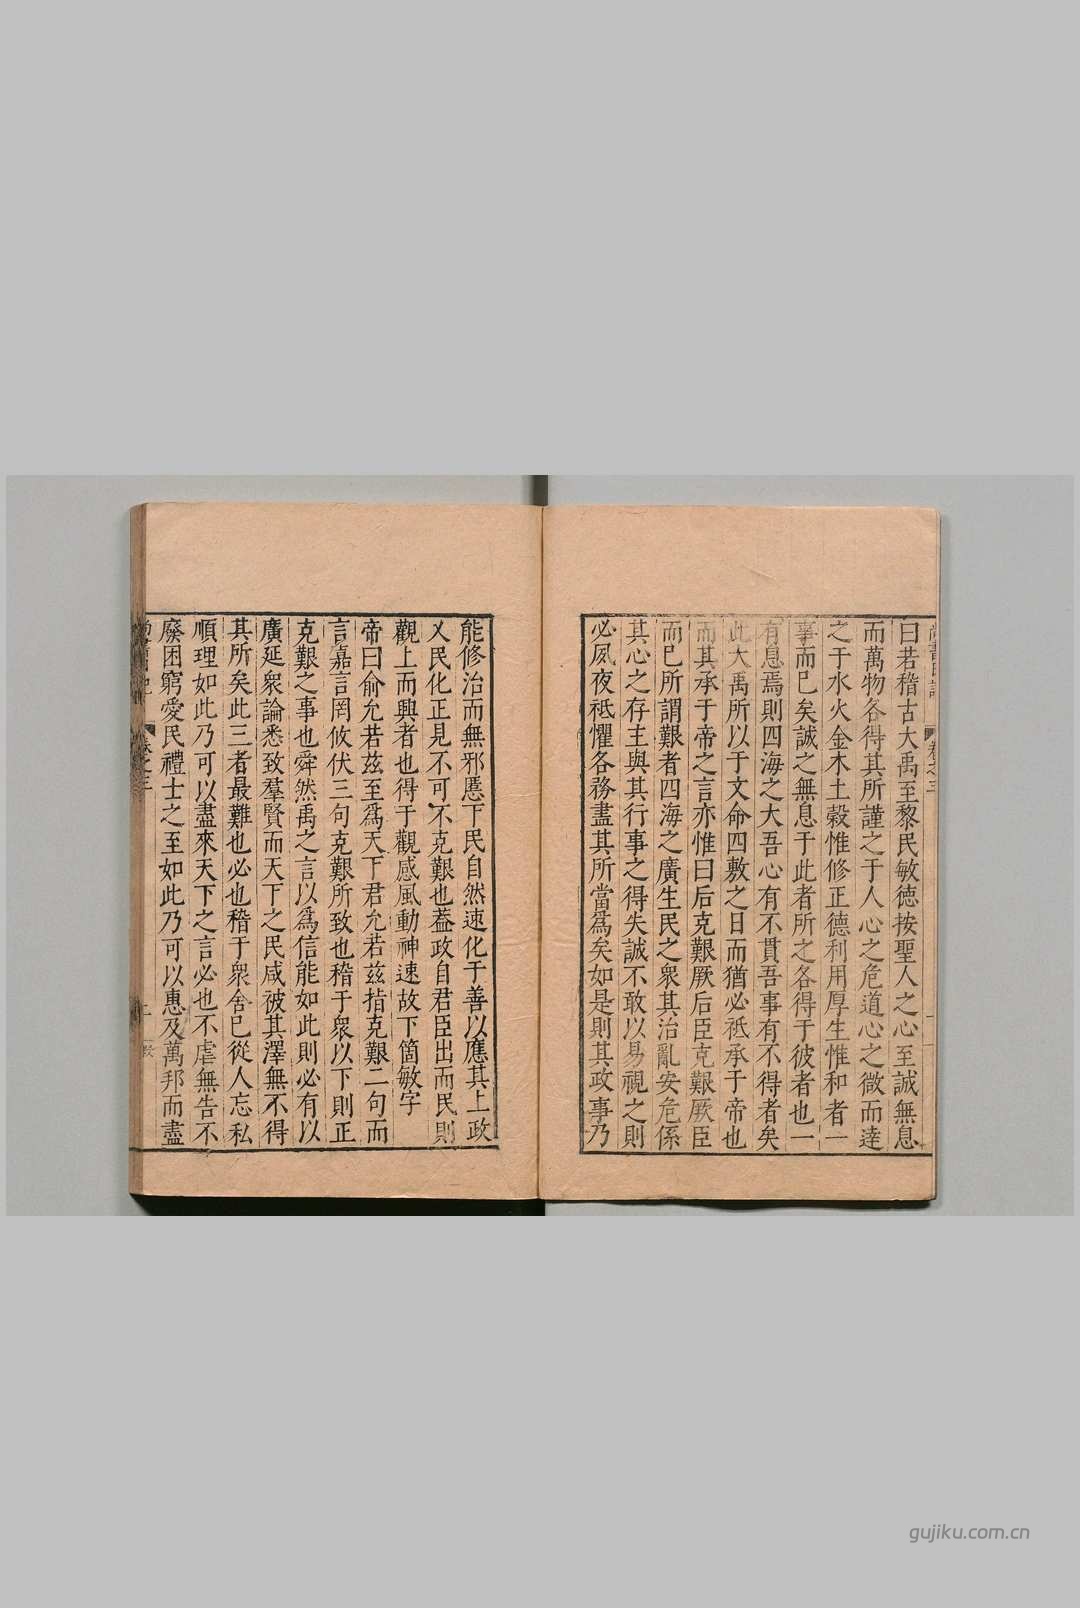 曰若稽古大禹至黎民敏德按聖人之心至誠無息
而萬物各得其所謹之于人心之危道心之微而達
之于水火金木土穀惟修正德利用厚生惟和者一
事而已矣誠之無息于此者所之各得于彼者也一
有息焉則四海之大吾心有不貫吾事有不得者矣
此大禹所以于文命四敷之日而猶必祗承于帝也
而其承于帝之言亦惟曰后克艱厥后臣克艱厥臣
而已所謂艱者四海之廣生民之衆其治亂安危係
其心之存主與其行事之得失誠不敢以易視之則
必夙夜祗懼各務盡其所當爲矣如是則其政事乃
能修治而無邪慝下民自然速化于善以應其上政
乂民化正見不可不克艱也葢政自君臣出而民則
觀上而興者也得于觀感風動神速故下箇敏字
帝曰俞允若茲至爲天下君允若茲指克艱二句而
言嘉言罔攸伏三句克艱所致也稽于衆以下則正
克艱之事也舜然禹之言以爲信能如此則必有以
廣延衆論悉致羣賢而天下之民咸被其澤無不得
其所矣此三者最難也必也稽于衆舍已從人忘私
順理如此乃可以盡來天下之言必也不虐無告不
廢困窮愛民禮士之至如此乃可以惠及萬邦而盡
卷之三
gujiku.com.cn